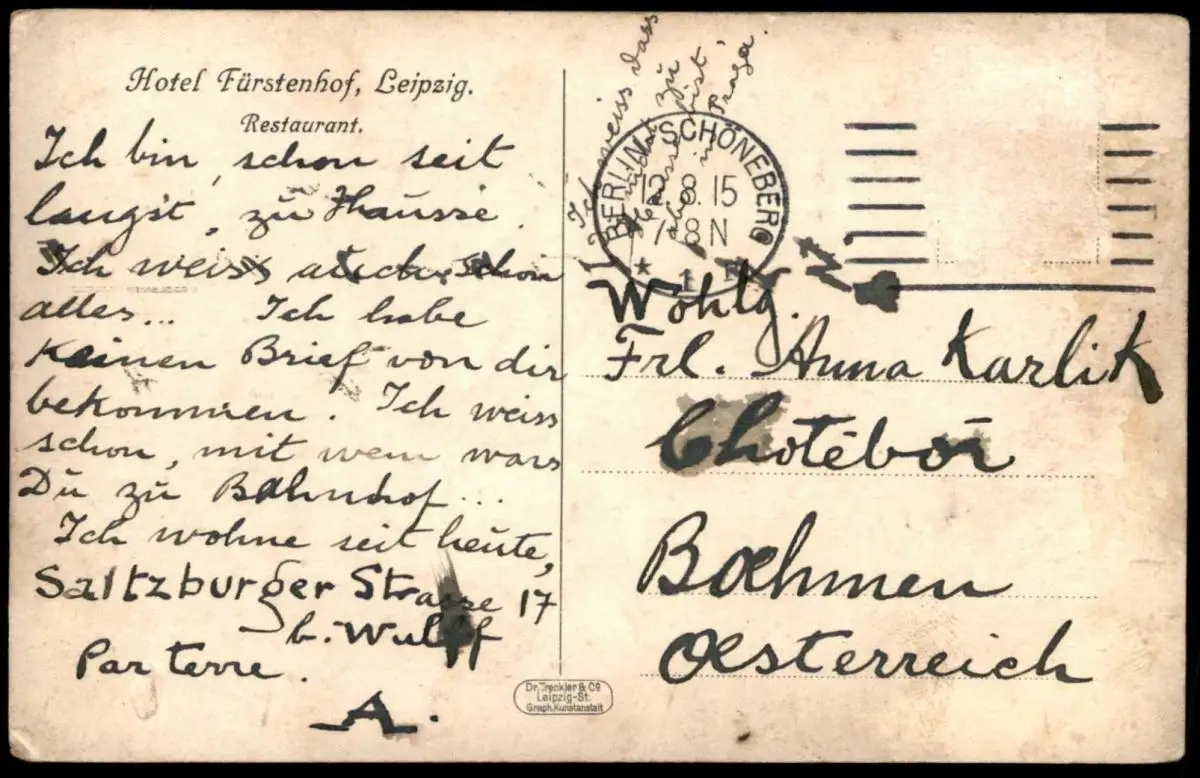 Hotel Fürstenhof, Leipzig.
Restaurant.
Ich bin, schon seit
langst, zu Haüsse.
Ich weiss auch schon
alles... Ich habe
Keinen Brief von dir
bekommen. Ich weiss
schon, mit wem wars
Dü zü Bahnhof...
Ich wohne seit heüte,
Saltzburger Strasse 17
b. Wulff
Parterre.
A.
Ich weiss dass
nicht zu
Hause bist,
aber in Praga.
BERLIN SCHÖNEBERG
12.8.15
7-8N
* 1
Wohlg.
Frl. Anna Karlik
Chotěboř
Boehmen
Oesterreich
Dr. Trenkler & Co
Leipzig-St.
Graph. Kunstanstalt